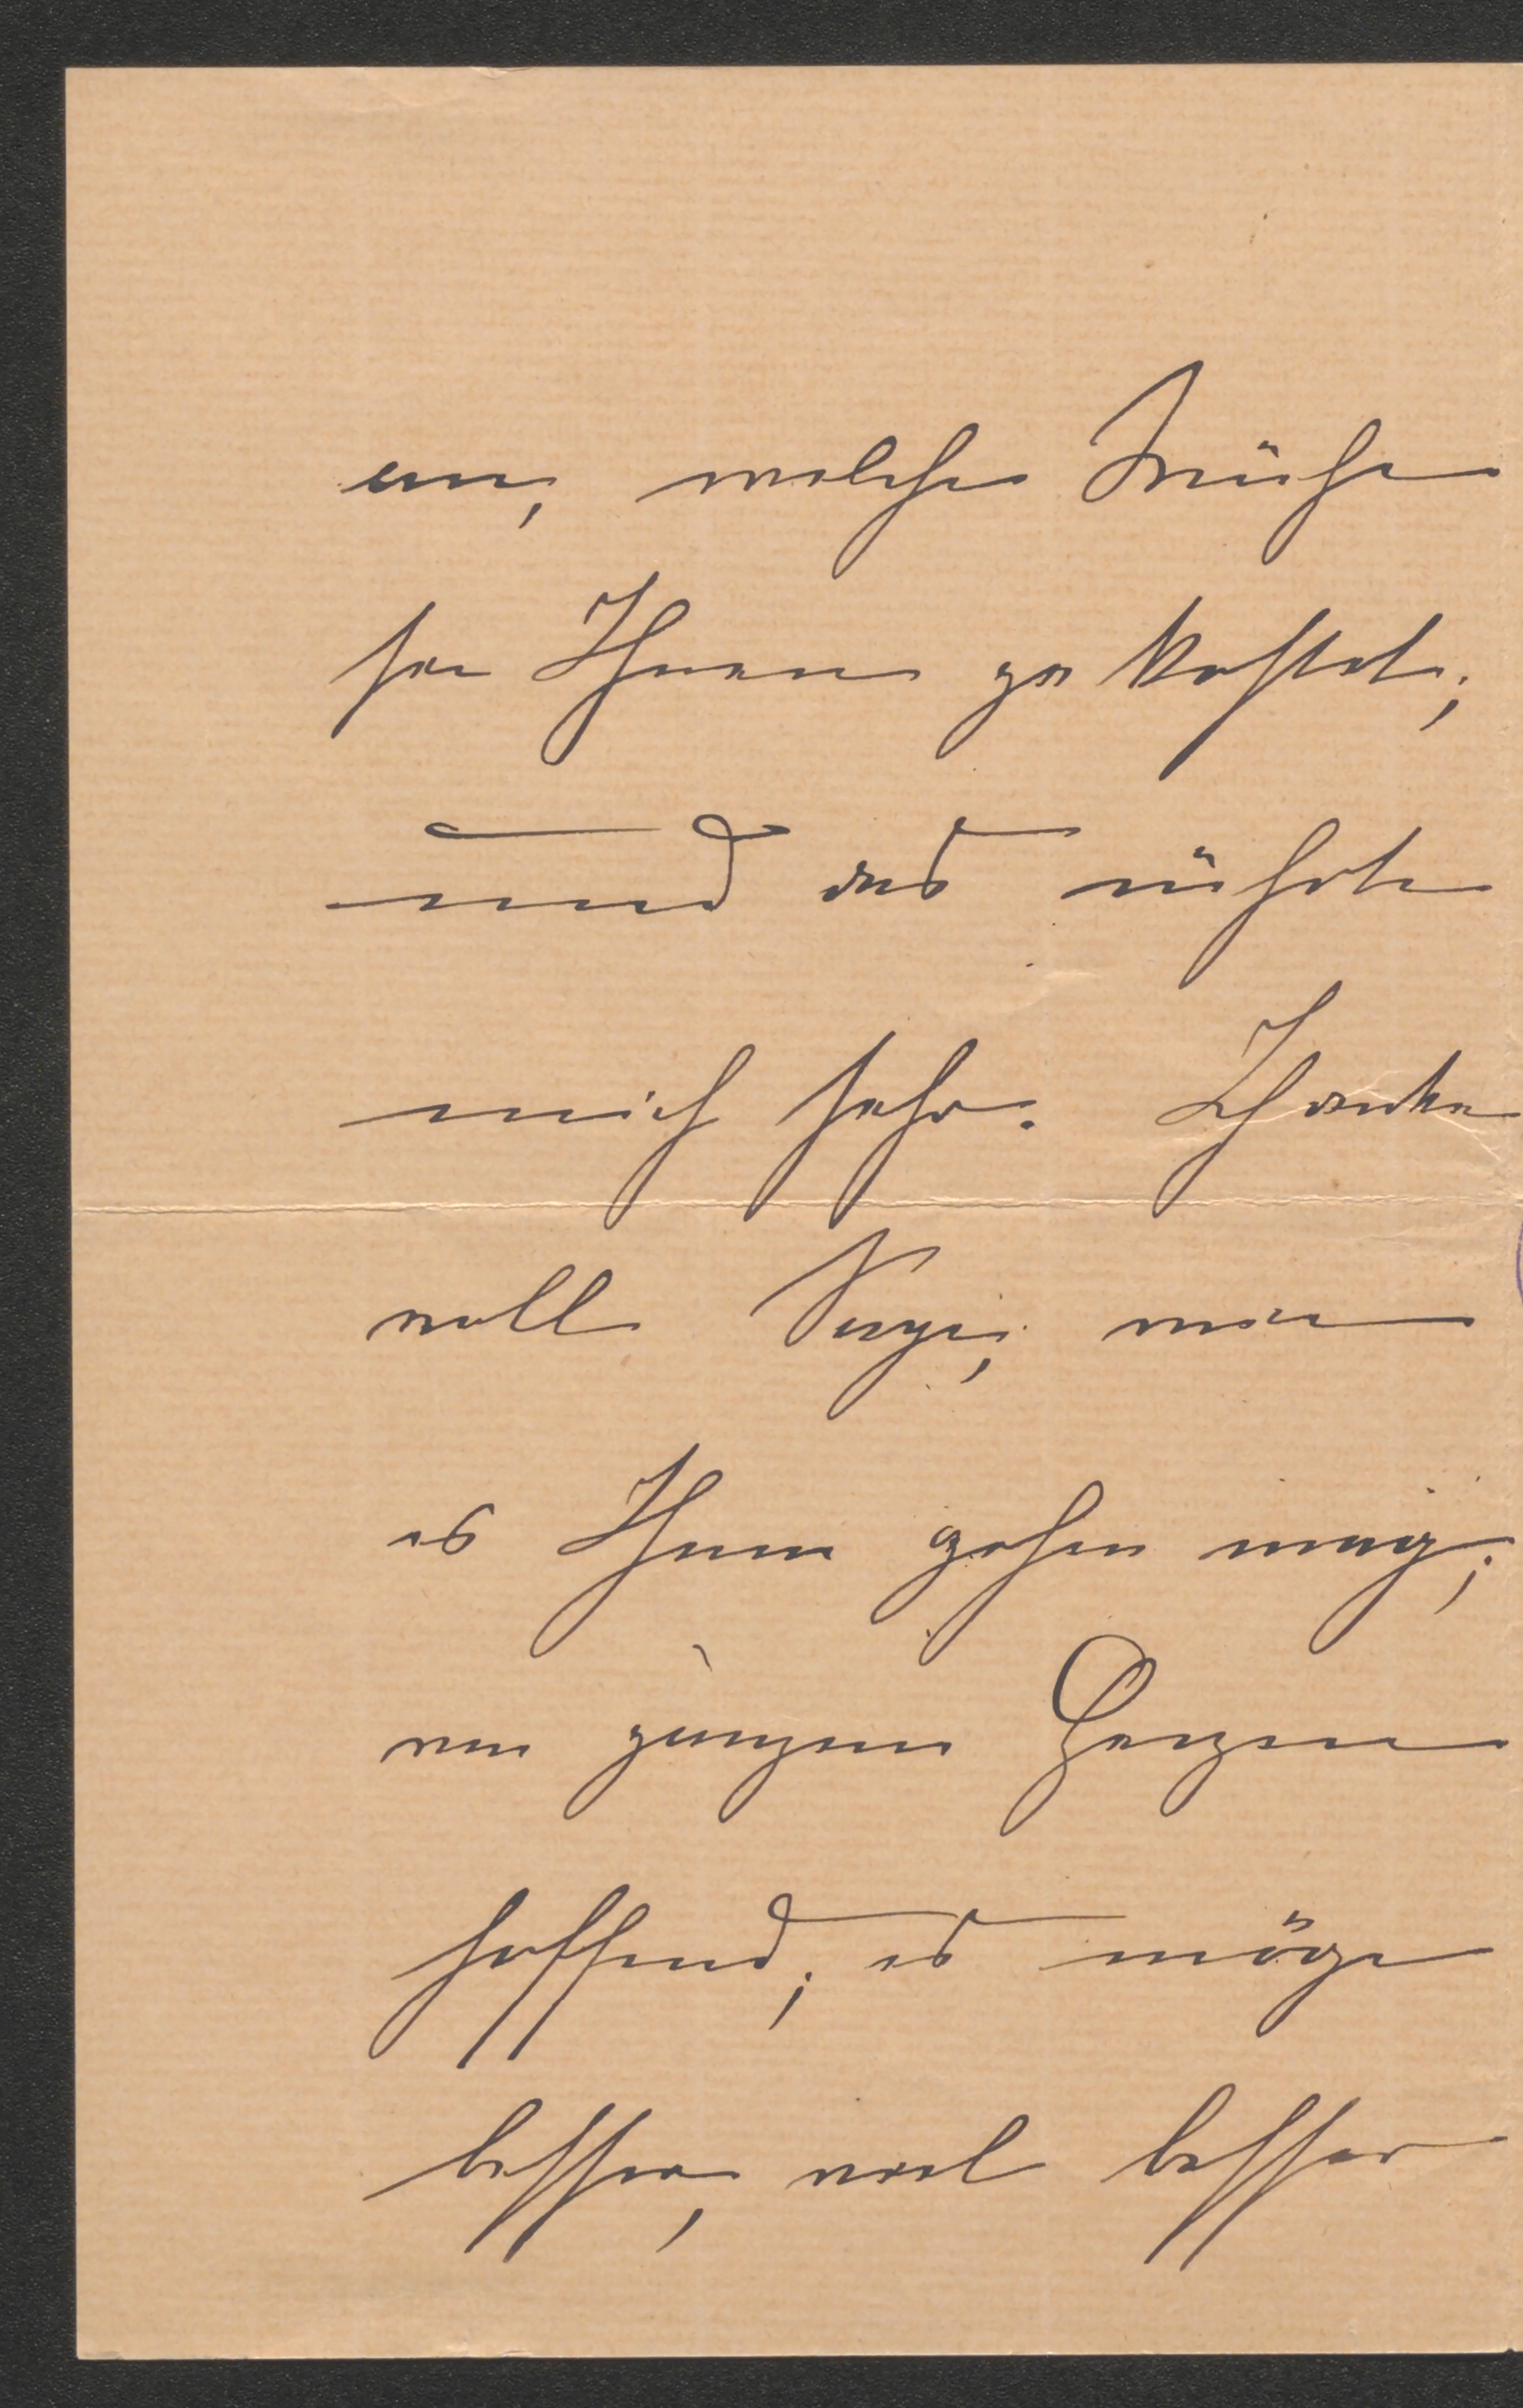 an, welche Mühe
sie Ihnen gekostet,
und das rührte
mich sehr. Ich denke
voll Sorge, wie
es Ihnen gehen mag,
von ganzem Herzen
hoffend, es möge
besser, viel besser